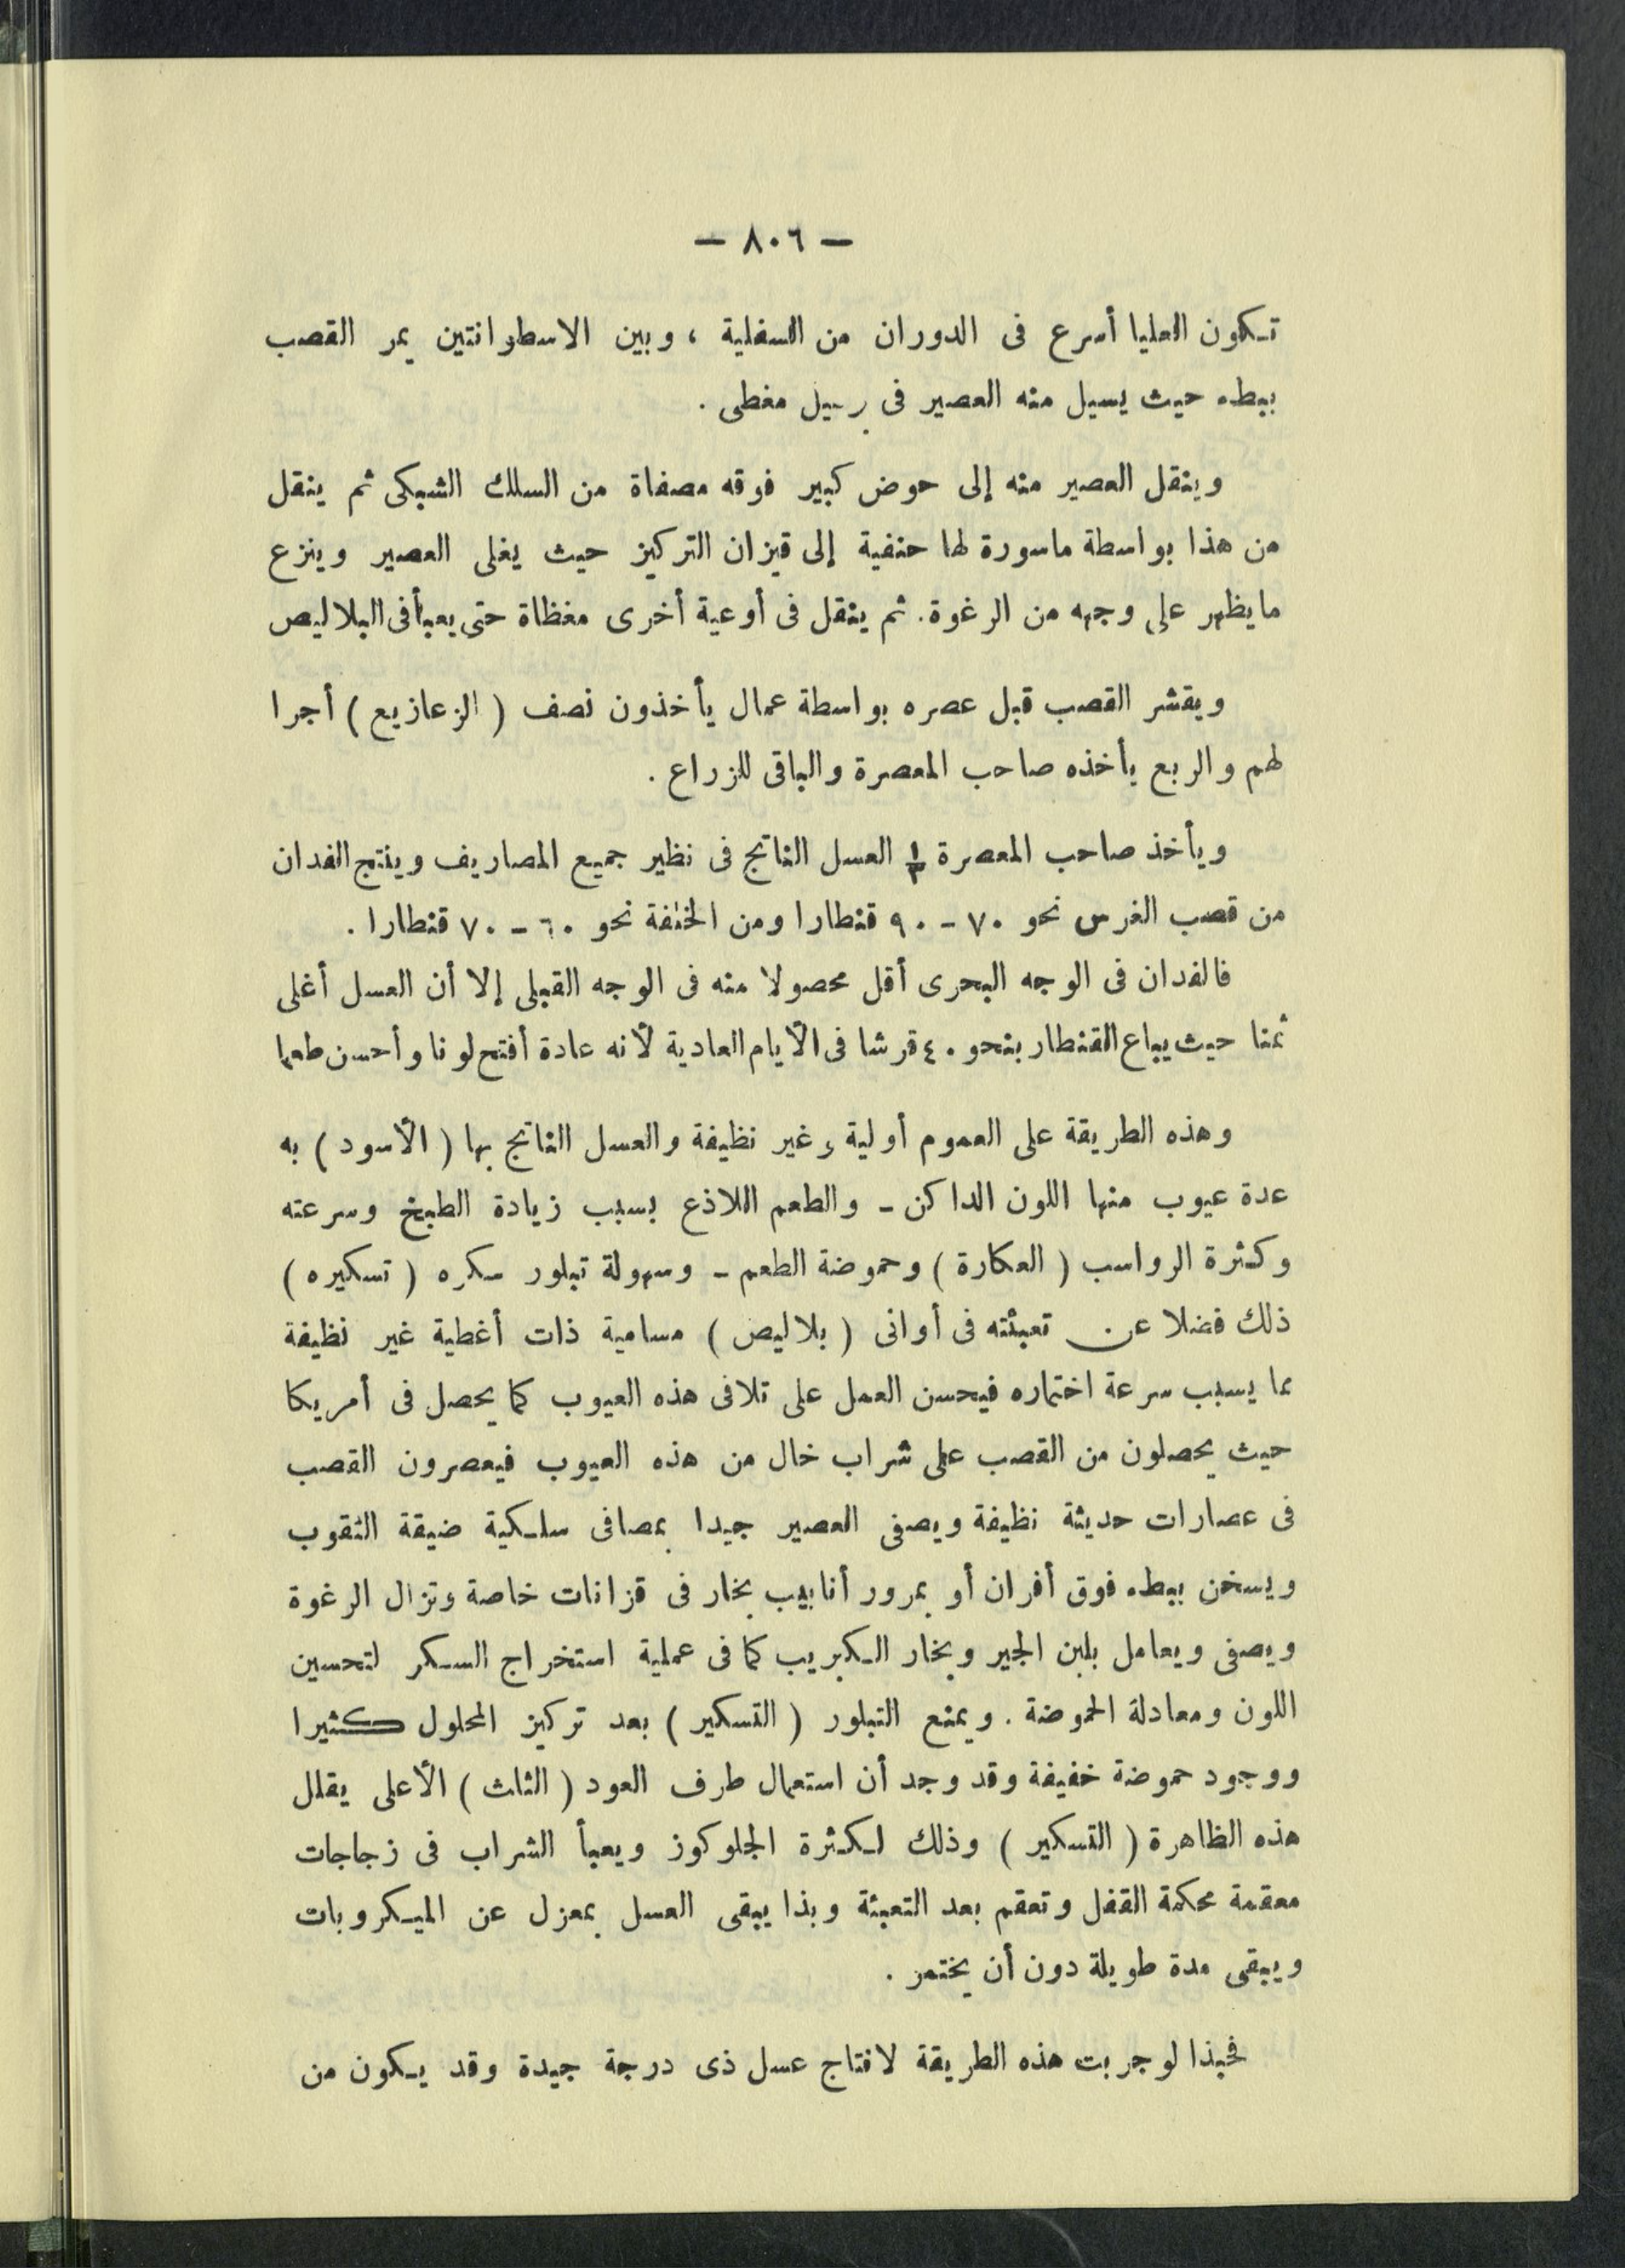 — ٨٠٦ —
تكون العليا أسرع فى الدوران من السفلية ، وبين الاسطوانتين يمر القصب
ببطء حيث يسيل منه العصير فى برميل مغطى .
وينقل العصير منه إلى حوض كبير فوقه مصفاة من السلك الشبكى ثم ينقل
من هذا بواسطة ماسورة لها حنفية إلى قيزان التركيز حيث يغلى العصير وينزع
ما يظهر على وجهه من الرغوة. ثم ينقل فى أوعية أخرى مغطاة حتى يعبأ فى البلاليص
ويقشر القصب قبل عصره بواسطة عمال يأخذون نصف ( الزعازيع ) أجرا
لهم والربع يأخذه صاحب المعصرة والباقى للزراع .
ويأخذ صاحب المعصرة ١/٣ العسل الناتج فى نظير جميع المصاريف وينتج الفدان
من قصب الغرس نحو ٧٠ - ٩٠ قنطارا ومن الخلفة نحو ٦٠ - ٧٠ قنطارا .
فالفدان فى الوجه البحرى أقل محصولا منه فى الوجه القبلى إلا أن العسل أغلى
ثمنا حيث يباع القنطار بنحو ٤٠ قرشا فى الأيام العادية لأنه عادة أفتح لونا وأحسن طعما
وهذه الطريقة على العموم أولية وغير نظيفة والعسل الناتج بها ( الأسود ) به
عدة عيوب منها اللون الداكن - والطعم اللاذع بسبب زيادة الطبخ وسرعته
وكثرة الرواسب ( العكارة ) وحموضة الطعم - وسهولة تبلور سكره ( تسكيره )
ذلك فضلا عن تعبئته فى أوانى ( بلاليص ) مسامية ذات أغطية غير نظيفة
مما يسبب سرعة اختماره فيحسن العمل على تلافى هذه العيوب كما يحصل فى أمريكا
حيث يحصلون من القصب على شراب خال من هذه العيوب فيعصرون القصب
فى عصارات حديثة نظيفة ويصفى العصير جيدا بمصافى سلكية ضيقة الثقوب
ويسخن ببطء فوق أفران أو بمرور أنابيب بخار فى قزانات خاصة وتزال الرغوة
ويصفى ويعامل بلبن الجير وبخار الكبريب كما فى عملية استخراج السكر لتحسين
اللون ومعادلة الحموضة . ويمنع التبلور ( التسكير ) بعد تركيز المحلول كثيرا
ووجود حموضة خفيفة وقد وجد أن استعمال طرف العود ( الثلث ) الأعلى يقلل
هذه الظاهرة ( التسكير ) وذلك لكثرة الجلوكوز ويعبأ الشراب فى زجاجات
معقمة محكمة القفل وتعقم بعد التعبئة وبذا يبقى العسل بمعزل عن الميكروبات
ويبقى مدة طويلة دون أن يختمر .
فحبذا لو جربت هذه الطريقة لانتاج عسل ذى درجة جيدة وقد يكون من